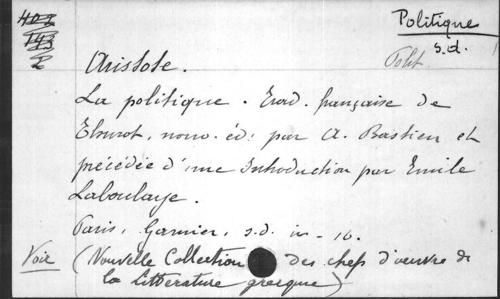 Politique
s.d.
Polit
Aristote.
La politique. Trad. française de
Thurot, nouv. éd: par A. Bastien et
précédée d'une Introduction par Emile
Laboulaye.
Paris, Garnier, s.d. in-16.
Voir (Nouvelle Collection des chefs d'oeuvre de
la littérature grecque)